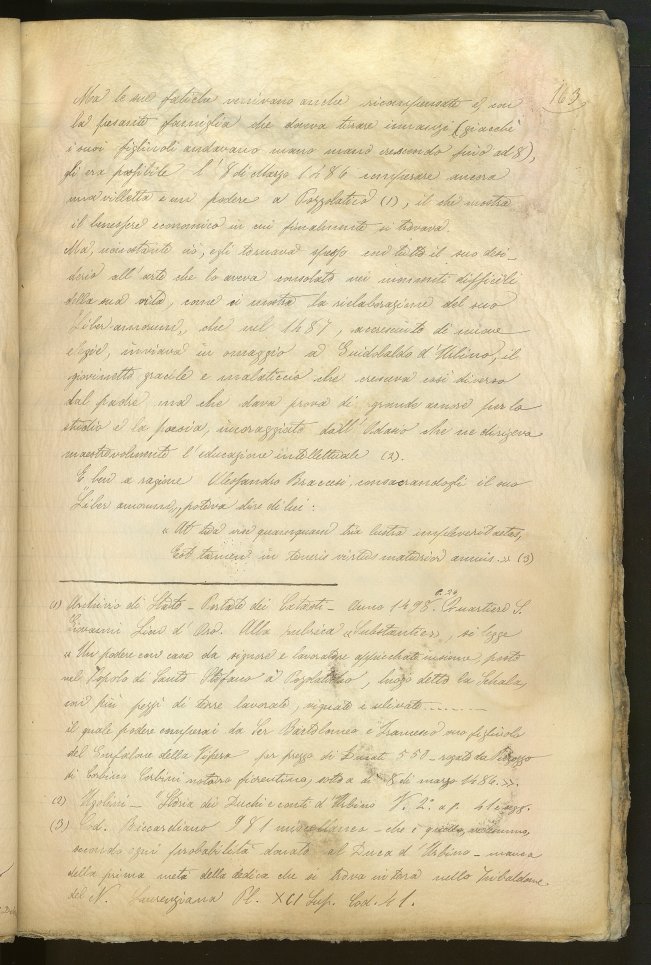 163
Ma le sue fatiche venivano anche ricompensate e, con
la pesante famiglia che doveva tirare innanzi (giacchè
i suoi figliuoli andavano mano mano crescendo fino ad 8),
gli era possibile l'8 di Marzo 1486 comperare ancora
una villetta e un podere a Pozzolatico (1), il che mostra
il benessere economico in cui finalmente si trovava.
Ma, nonostante ciò, egli tornava spesso con tutto il suo desi-
derio all'arte che lo aveva consolato nei momenti difficili
della sua vita, come ci mostra la rielaborazione del suo
"Liber amorum„ che nel 1487, accresciuto di nuove
elegie, inviava in omaggio a Guidobaldo d'Urbino, il
giovinetto gracile e malaticcio che cresceva così diverso
dal padre ma che dava prova di grande amore per lo
studio e la poesia, incoraggiato dall'Odasio che ne dirigeva
maestrevolmente l'educazione intellettuale (2).
E ben a ragione Alessandro Braccesi, consacrandogli il suo
"Liber amorum„, poteva dire di lui:
« At tua vix quamquam tria lustra impleverit aetas,
Est tamen in teneris virtus maturior annis. » (3)
(1) Archivio di Stato - Portate dei Catasti - Anno 1498. c. 24 Quartiere S.
Giovanni Lion d'Oro. Alla rubrica «Substantie», si legge
« Un podere con casa da signore e lavoratore appicchate insieme, posto
nel Popolo di Santo Stefano a Pozolaticho, luogo detto la Schala,
con più pezzi di terre lavorate, vignate e ulivate
il quale podere comperai da Ser Bartolomeo e Francesco suo figliuolo
del Gonfalone della Vipera per prezzo di Ducat. 550 - rogato da Pierozzo
di Cerbino Cerbini notaro fiorentino, sotto a dì 8 di marzo 1486.».
(2) Ugolini - "Storia dei Duchi e conti d'Urbino V. 2° a p. 41 e segg.
(3) Cod. Riccardiano 981 miscellaneo - che
secondo ogni probabilità donato al Duca d'Urbino - manca
della prima metà della dedica che si trova intera nello Zibaldone
del N. Laurenziana Pl. XCI Sup. Cod. 41.